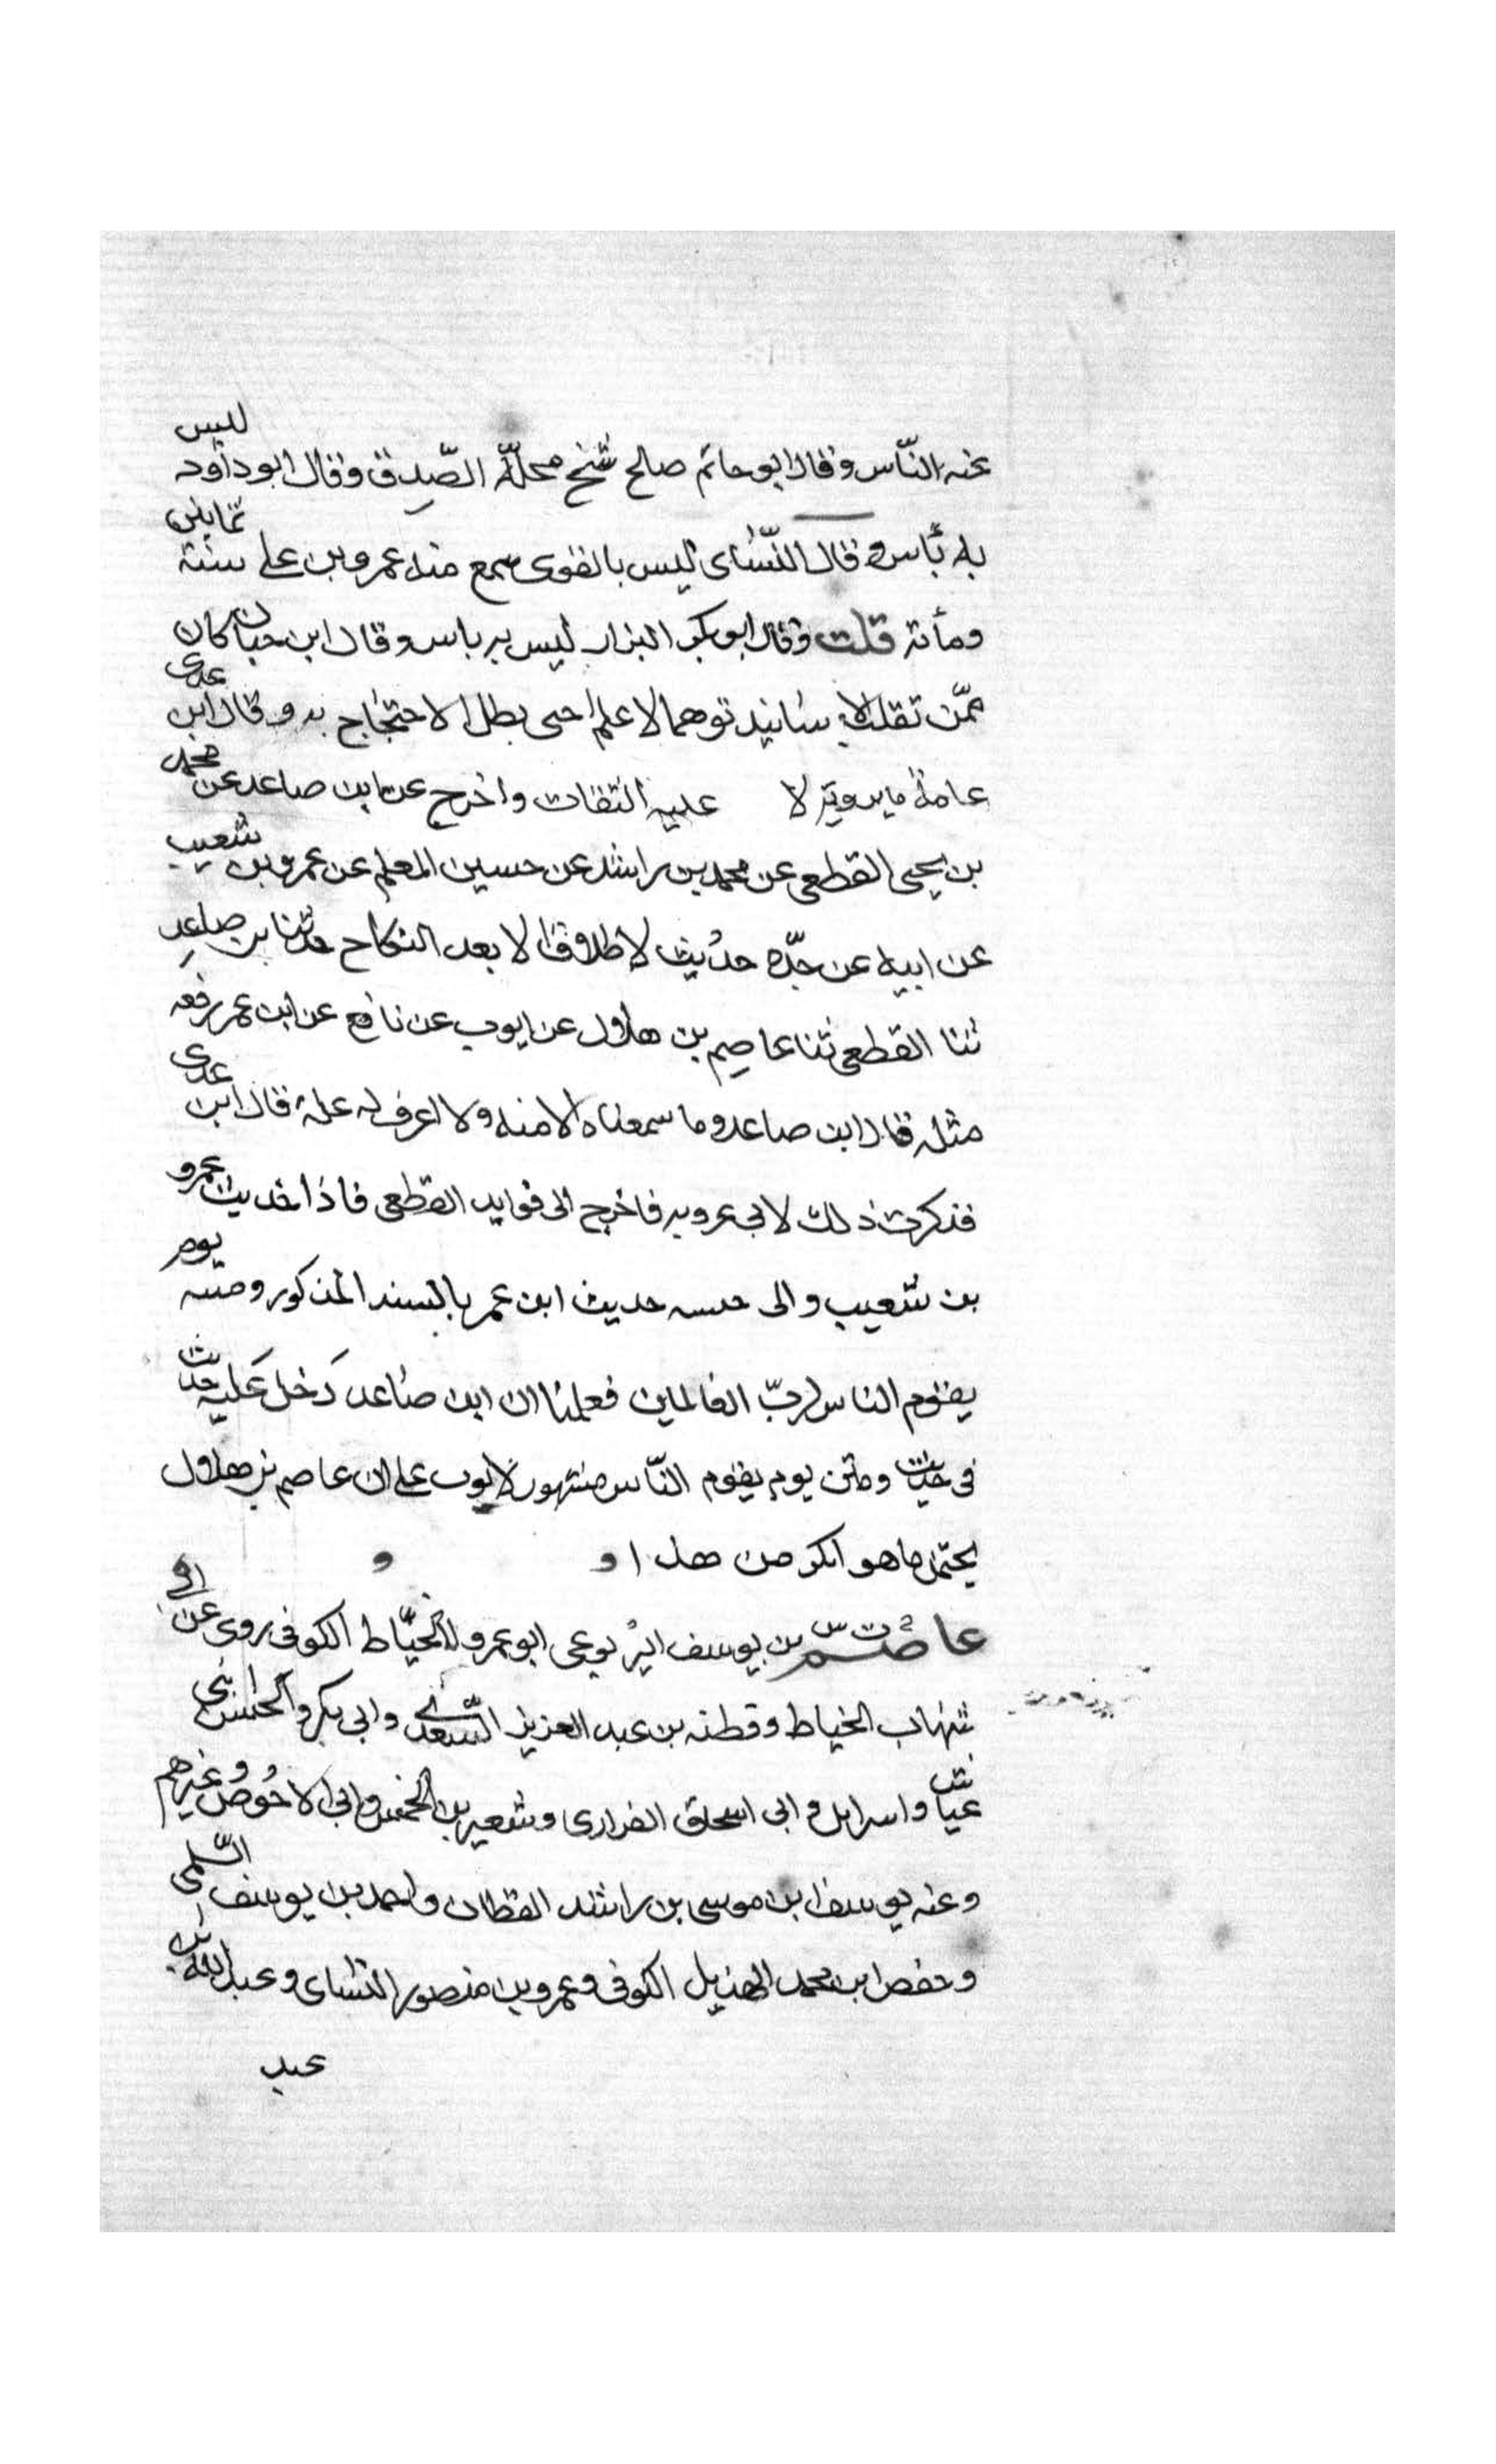 عنه الناس وقال ابو حاتم صالح شيخ محلّه الصّدق وقال ابو داود ليس
به بأس وقال النّسائى ليس بالقوى سمع منه عمرو بن على سنة ثمانين
ومأئة قلت وقال ابو بكر البزار ليس به باس وقال ابن حبان كان
ممّن تقلب الاسانيد توهما لا علما حتى بطل الاحتجاج به وقال ابن عدى
عامة ما يرويه لا عليه الثقات واخرج عن ابن صاعد عن محمد
بن يحيى القطعى عن محمد بن راشد عن حسين المعلم عن عمرو بن شعيب
عن ابيه عن جدّه حديث لا طلاق الا بعد النكاح حدثنا بن صاعد
ثنا القطعى ثنا عاصم بن هلال عن ايوب عن نافع عن ابن عمر رفعه
مثله قال ابن صاعد وما سمعناه الا منه ولا اعرف له علة قال ابن عدى
فذكرت ذلك لابى عروبه فاخرج الى فوايد القطعى فاذا حديث عمرو
بن شعيب والى حديث ابن عمر بالسند المذكور ومتنه يوم
يقوم الناس لربّ العالمين فعلمنا ان ابن صاعد دخل عليه حديث
فى حديث ومتن يوم يقوم النّاس مشهور لايوب على ان عاصم بن هلال
يحتمل ما هو انكر من هذا و و
عاصم ت س بن يوسف اليربوعى ابو عمرو الخيّاط الكوفى روى عن ابى
شهاب الخياط وقطنه بن عبد العزيز السّعدى وابى بكر و
عياش واسرايل وابى اسحاق الفزارى وشعير بن الخمس وابى الاحوص وغيرهم
وعنه يوسف ابن موسى بن راشد القطان واحمد بن يوسف السّلمى
وحفص ابن محمد الهذيل الكوفى وعمرو بن منصور النسائى وعبد الله بن
عبد